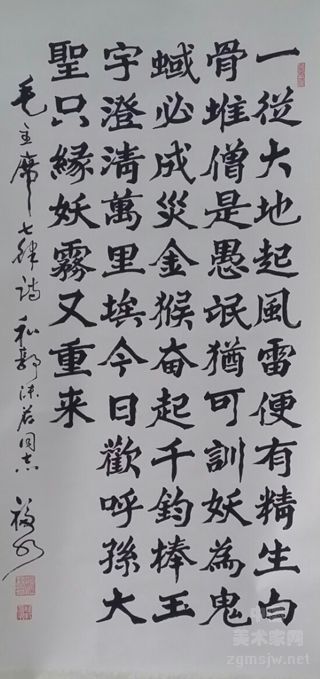 一從大地起風雷便有精生白
骨堆僧是愚氓猶可訓妖為鬼
蜮必成災金猴奮起千鈞棒玉
宇澄清萬里埃今日歡呼孫大
聖只緣妖霧又重来
毛主席七律詩和郭沫若同志
美术家网
zgmsjw.net